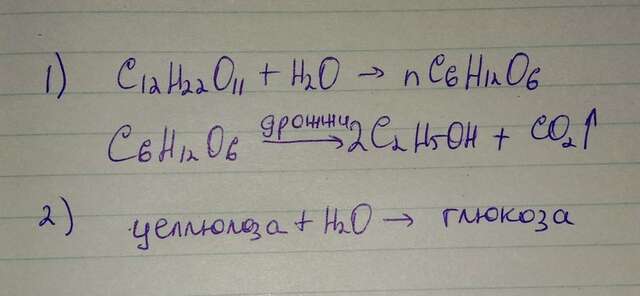 1) C₁₂H₂₂O₁₁ + H₂O → nC₆H₁₂O₆
C₆H₁₂O₆ дрожжи→ 2C₂H₅OH + CO₂↑
2) целлюлоза + H₂O → глюкоза